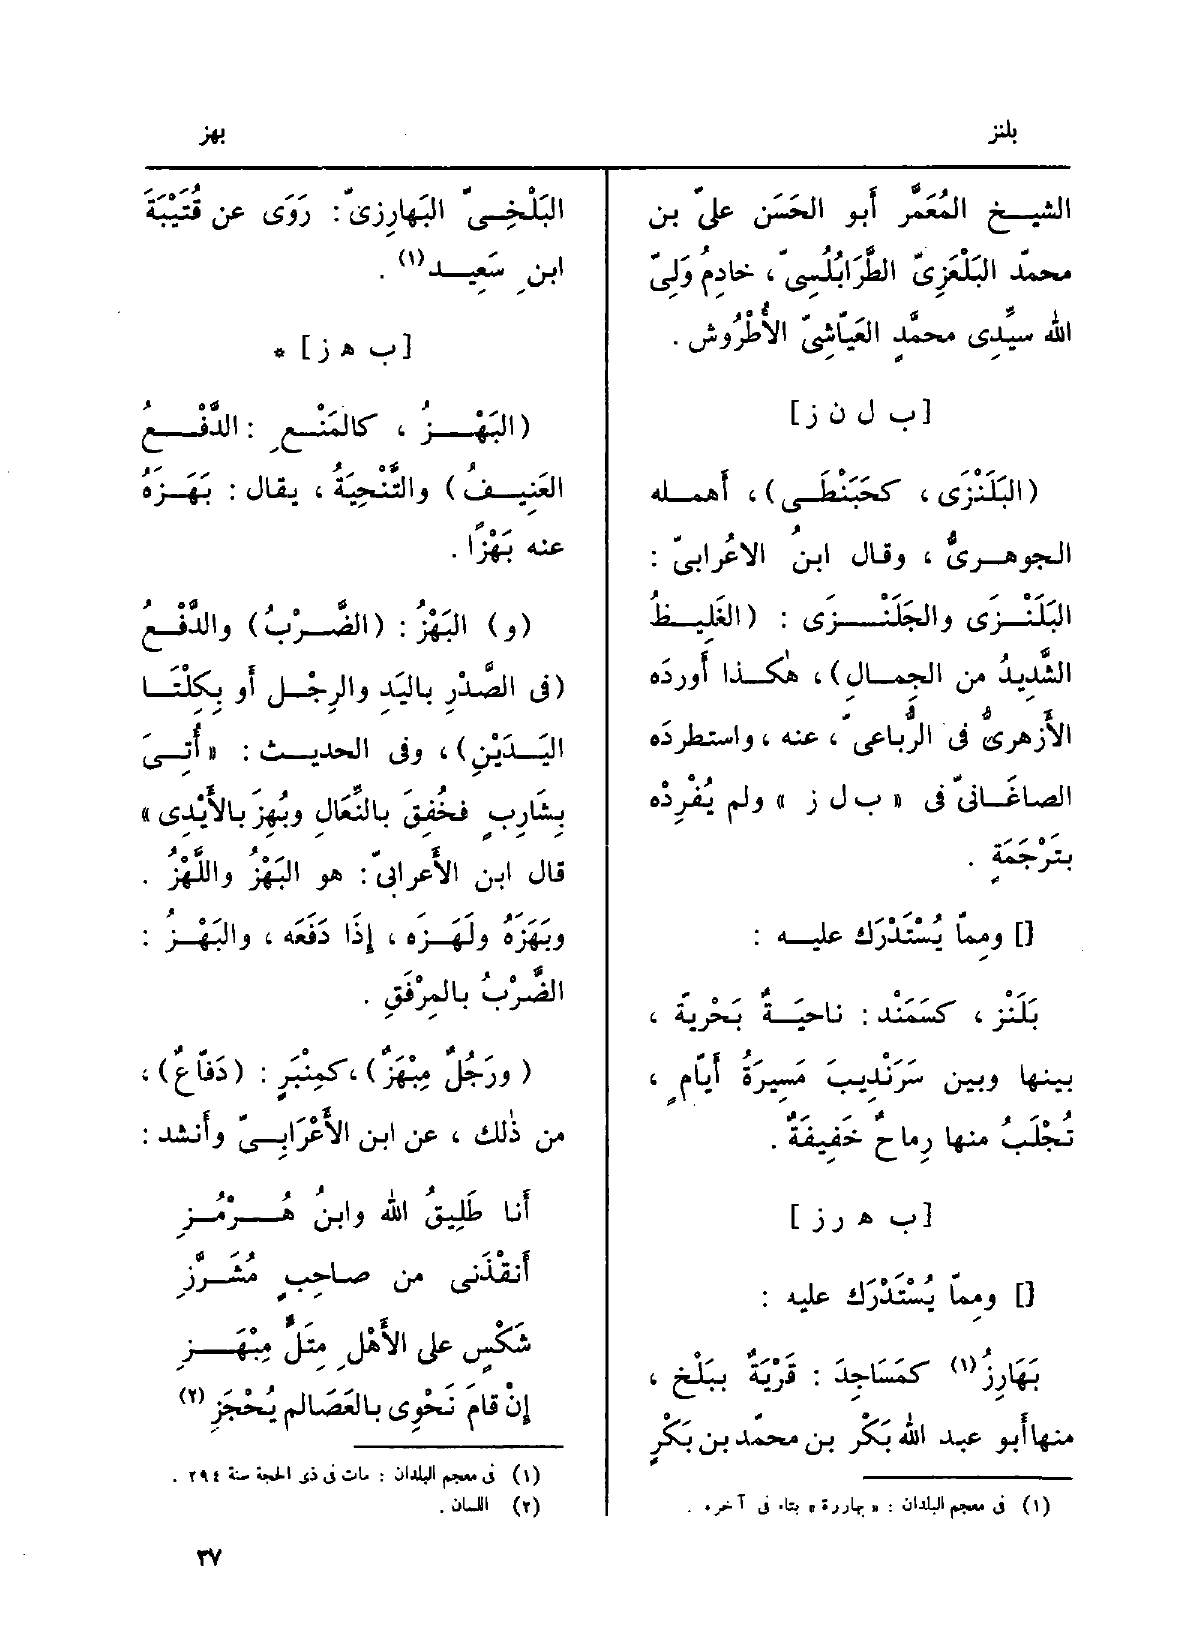 بلنز
بهز
الشيخ المُعَمَّر أَبو الحَسَن علىّ بن
محمّد البَلْعَزِىّ الطَّرَابُلُسِىّ ، خادِمُ وَلِىّ
الله سيِّدِى محمَّدٍ العَيّاشِىّ الأُطْرُوش .
[ ب ل ن ز ]
( البَلَنْزَى ، كحَبَنْطَى ) ، أَهمله
الجوهرىُّ ، وقال ابنُ الاعْرابىّ :
البَلَنْزَى والجَلَنْزَى : ( الغَلِيظُ
الشَّدِيدُ من الجِمال ) ، هٰكذا أَوردَه
الأَزهرىُّ فى الرُّباعىّ ، عنه ، واستطردَه
الصاغَانىّ فى « ب ل ز » ولم يُفْرِدْه
بتَرْجَمَةٍ .
[] وممّا يُسْتَدْرَك عليه :
بَلَنْز ، كسَمَنْد : ناحيَةٌ بَحْرية ،
بينها وبين سَرَنْدِيبَ مَسِيرَةُ أَيّامٍ ،
تُجْلَبُ منها رِماحٌ خَفِيفَةٌ .
[ ب ه ر ز ]
[] وممّا يُسْتَدْرَك عليه :
بَهَارِزُ (١) كمَسَاجِدَ : قَرْيَةٌ ببَلْخ ،
منها أَبو عبد الله بَكْر بن محمّد بن بَكْرٍ
(١) فى معجم البلدان : « بهارزة » بتاء فى آخره .
البَلْخِىّ البَهارِزىّ : رَوَى عن قُتَيْبَةَ
ابنِ سَعِيد (١) .
[ ب ه ز ] *
( البَهْزُ ، كالمَنْعِ : الدَّفْعُ
العَنِيفُ ) والتَّنْحِيَةُ ، يقال : بَهَزَهُ
عنه بَهْزًا .
( و ) البَهْزُ : ( الضَّرْبُ ) والدَّفْعُ
( فى الصَّدْرِ باليَدِ والرِجْل أَو بِكِلْتَا
اليَدَيْنِ ) ، وفى الحديث : « أُتِىَ
بِشَارِبٍ فخُفِقَ بالنِّعَالِ وبُهِزَ بالأَيْدِى »
قال ابن الأَعرابىّ : هو البَهْزُ واللَّهْزُ .
وبَهَزَهُ ولَهَزَه ، إِذَا دَفَعَه ، والبَهْزُ :
الضَّرْبُ بالمِرْفَقِ .
( ورَجُلٌ مِبْهَزٌ ) ، كمِنْبَرٍ : ( دَفّاعٌ ) ،
من ذٰلك ، عن ابن الأَعْرَابِىّ وأَنشد :
أَنا طَلِيقُ الله وابنُ هُرْمُزِ
أَنقَذَنى من صاحِبٍ مُشَرَّزِ
شَكْسٍ على الأَهْلِ مِتَلٍّ مِبْهَزِ
إِنْ قامَ نَحْوِى بالعَصَا لم يُحْجَزِ (٢)
(١) فى معجم البلدان : مات فى ذى الحجة سنة ٢٩٤ .
(٢) اللسان .
٣٧